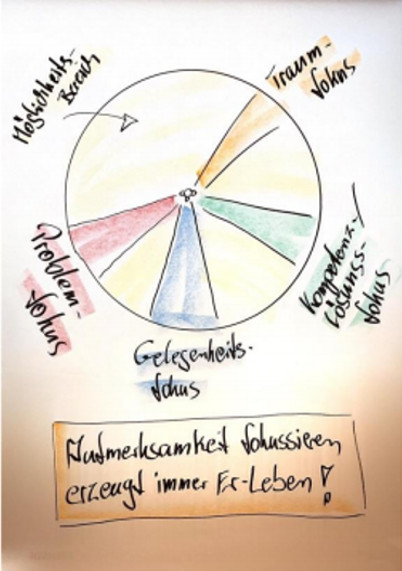 Möglichkeits-
Bereich
Traum-
fokus
Problem-
fokus
Kompetenz-/
Lösungs-
fokus
Gelegenheits-
fokus
Aufmerksamkeit fokussieren
erzeugt immer Er-Leben!